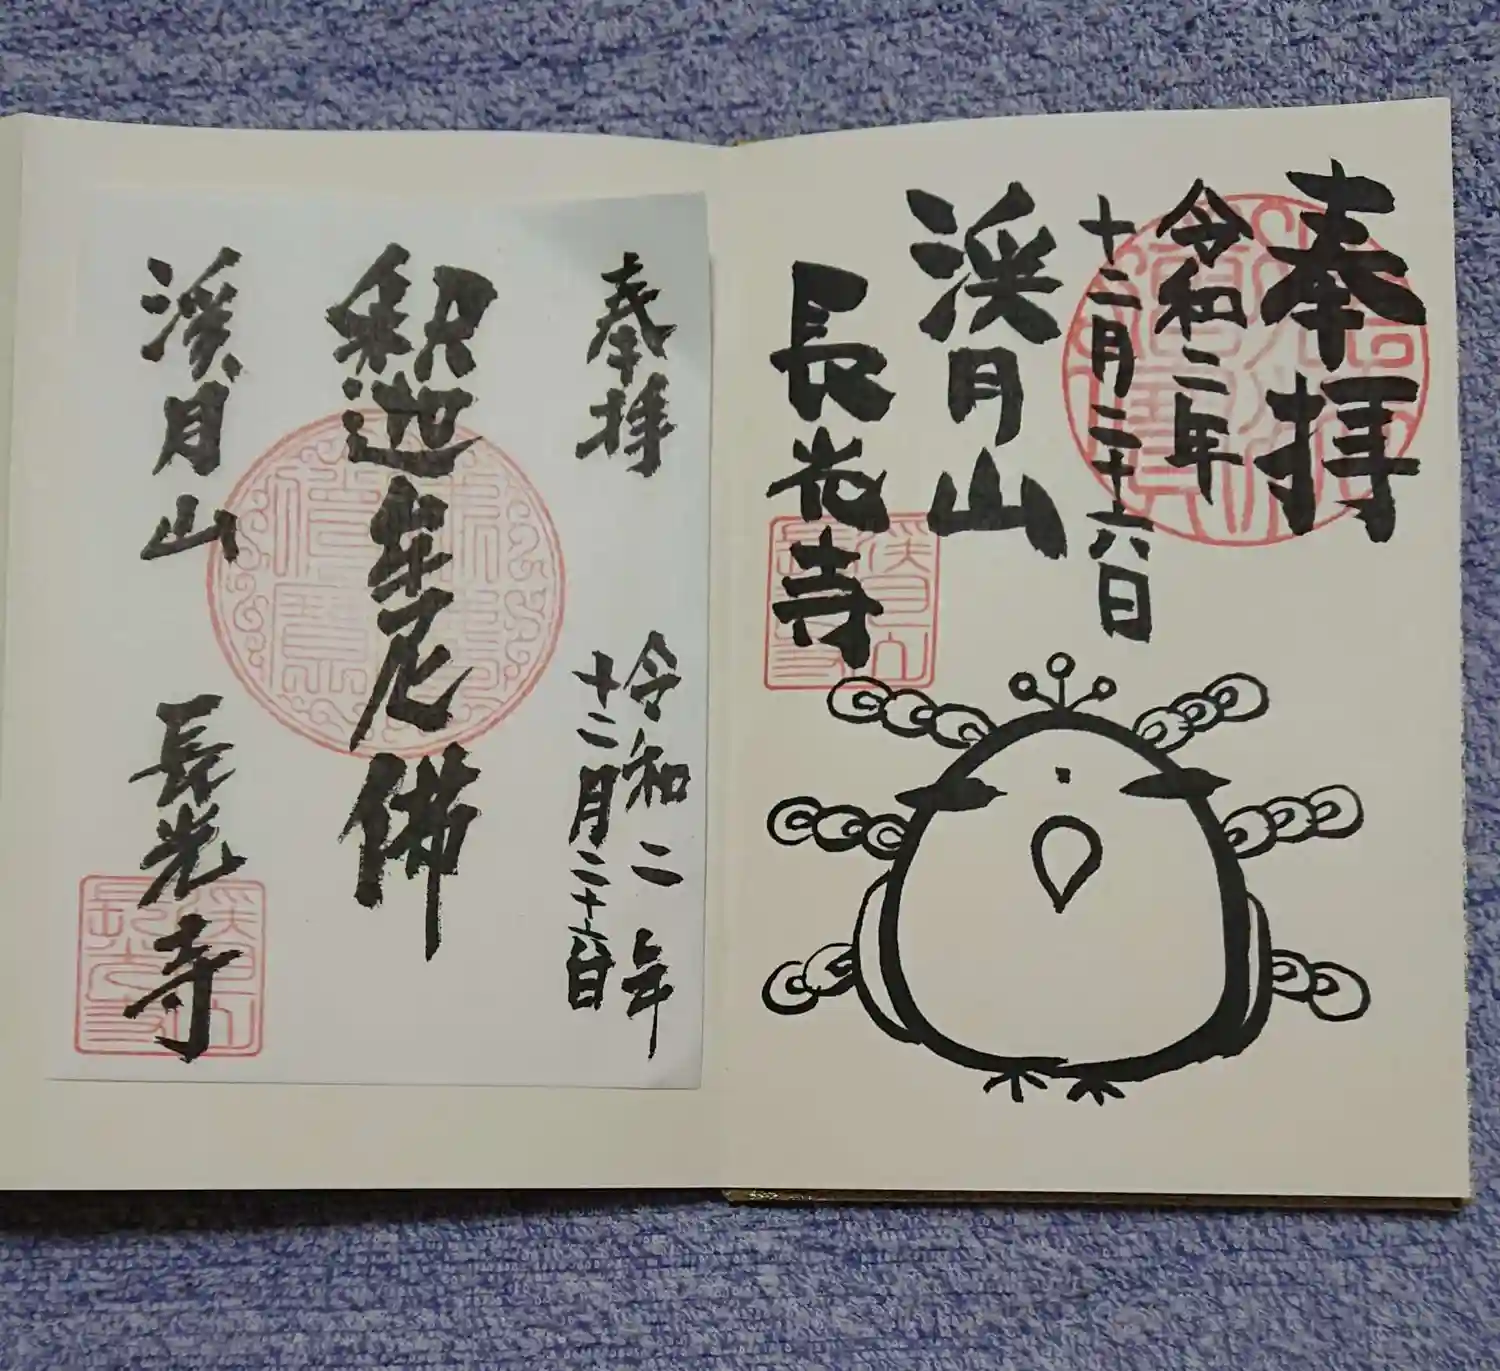 奉拝
令和二年
十二月二十六日
渓月山
長光寺
奉拝
令和二年
十二月二十六日
釈迦牟尼佛
渓月山
長光寺